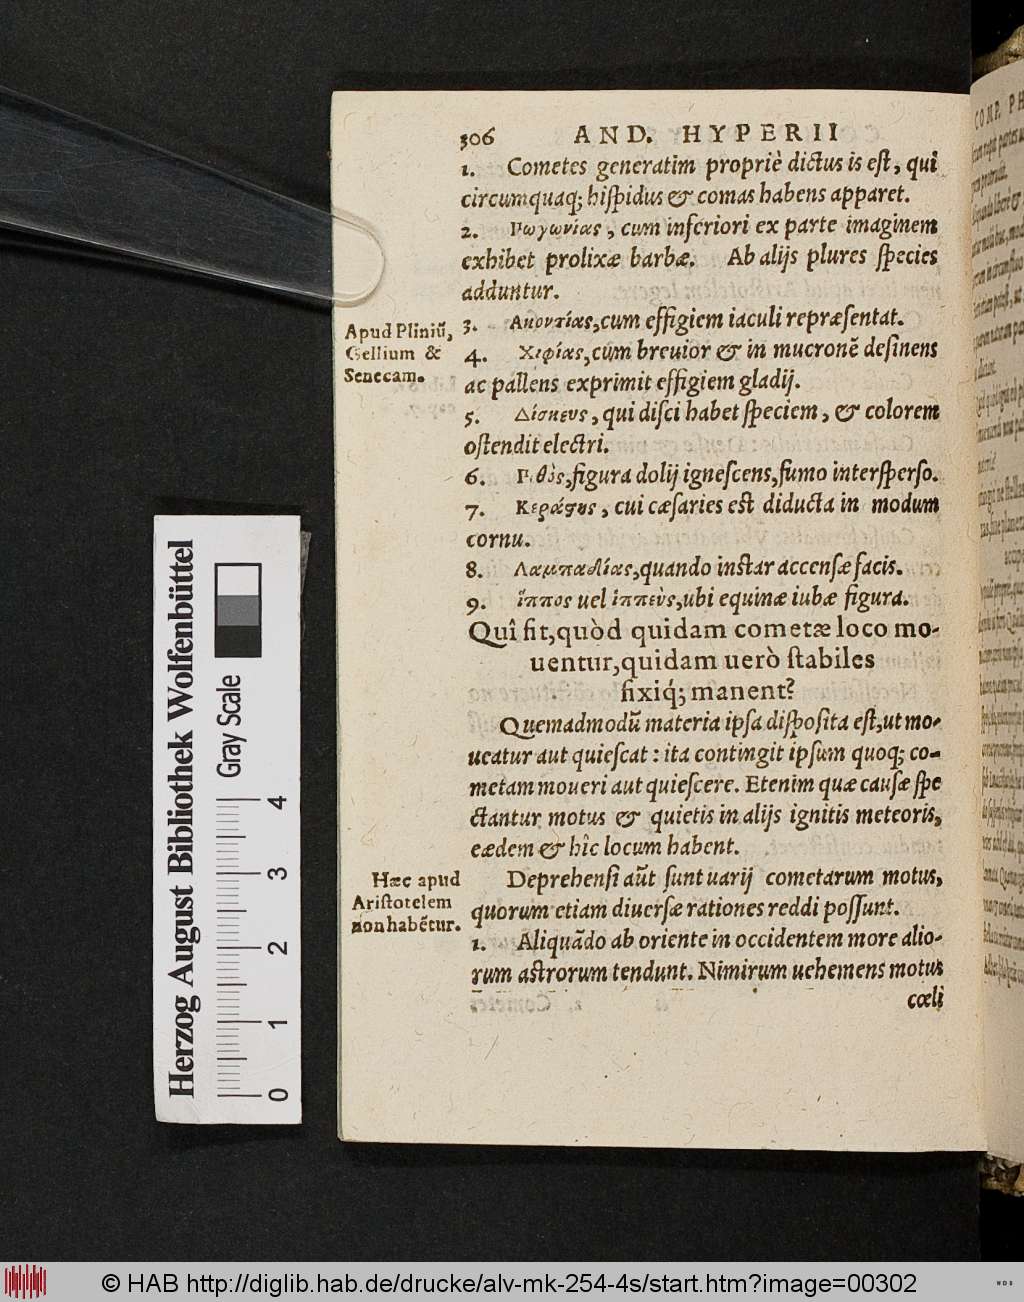 306 AND. HYPERII
1. Cometes generatim propriè dictus is eſt, qui
circumquaq; hiſpidus & comas habens apparet.
2. Πωγωνίας, cum inferiori ex parte imaginem
exhibet prolixæ barbæ. Ab alijs plures ſpecies
adduntur.
Apud Pliniũ,
Gellium &
Senecam.
3. Ακοντίας, cum effigiem iaculi repræſentat.
4. Χιφίας, cum breuior & in mucronẽ deſinens
ac pallens exprimit effigiem gladij.
5. Δίσκευς, qui diſci habet ſpeciem, & colorem
oſtendit electri.
6. Πιθὸς, figura dolij igneſcens, fumo interſperſo.
7. Κεράςης, cui cæſaries eſt diducta in modum
cornu.
8. Λαμπαδίας, quando inſtar accenſæ facis.
9. ἵππος uel ἱππεὺς, ubi equinæ iubæ figura.
Quî fit, quòd quidam cometæ loco mo-
uentur, quidam uerò ſtabiles
fixiq́; manent?
Quemadmodũ materia ipſa diſpoſita eſt, ut mo-
ueatur aut quieſcat: ita contingit ipſum quoq; co-
metam moueri aut quieſcere. Etenim quæ cauſæ ſpe
ctantur motus & quietis in alijs ignitis meteoris,
eædem & hîc locum habent.
Hæc apud
Ariſtotelem
non habẽtur.
Deprehenſi aũt ſunt uarij cometarum motus,
quorum etiam diuerſæ rationes reddi poſſunt.
1. Aliquãdo ab oriente in occidentem more alio-
rum aſtrorum tendunt. Nimirum uehemens motus
cœli
COMP. PH
Herzog August Bibliothek Wolfenbüttel
Gray Scale
0 1 2 3 4
© HAB http://diglib.hab.de/drucke/alv-mk-254-4s/start.htm?image=00302
WDB